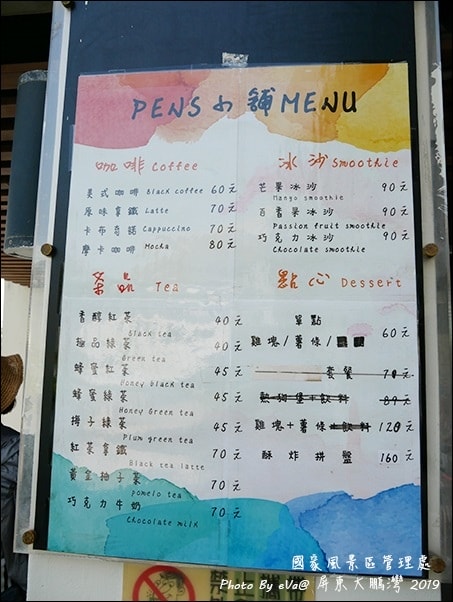 PENS小舖MENU
咖啡 Coffee
美式咖啡 Black coffee 60元
原味拿鐵 Latte 70元
卡布奇諾 Cappuccino 70元
摩卡咖啡 Mocha 80元
冰沙 Smoothie
芒果冰沙 90元
Mango smoothie
百香果冰沙 90元
Passion fruit smoothie
巧克力冰沙 90元
Chocolate smoothie
茶品 Tea
香醇紅茶 40元
Black tea
極品綠茶 40元
Green tea
蜂蜜紅茶 45元
Honey black tea
蜂蜜綠茶 45元
Honey Green tea
梅子綠茶 45元
Plum green tea
紅茶拿鐵 70元
Black tea latte
黃金柚子茶 70元
pomelo tea
巧克力牛奶 70元
Chocolate milk
點心 Dessert
單點
雞塊/薯條/ 60元
套餐 70元
熱狗堡+飲料 89元
雞塊+薯條+飲料 120元
酥炸拼盤 160元
國家風景區管理處
Photo By eVa@ 屏東大鵬灣 2019